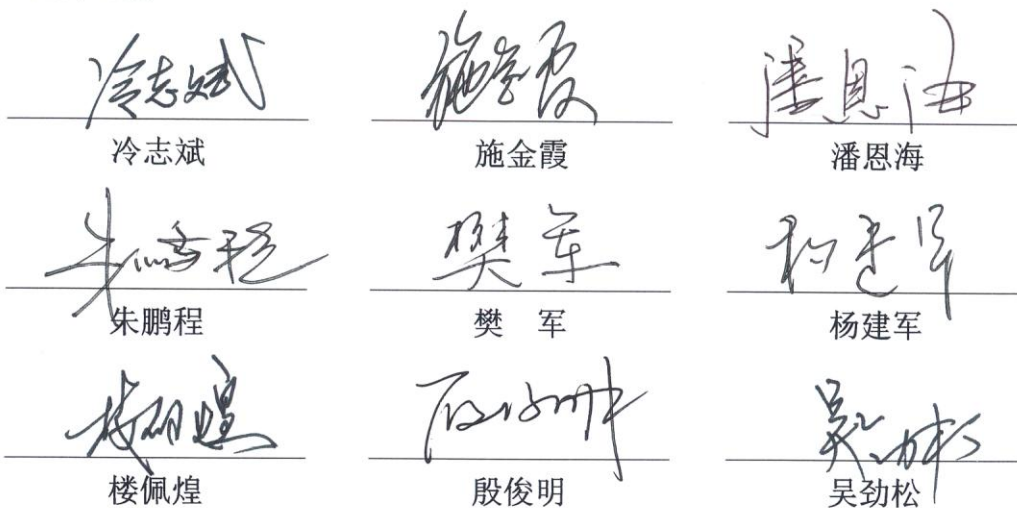 冷志斌 施金霞 潘恩海
冷志斌 施金霞 潘恩海
朱鹏程 樊军 杨建军
朱鹏程 樊 军 杨建军
楼佩煌 殷俊明 吴劲松